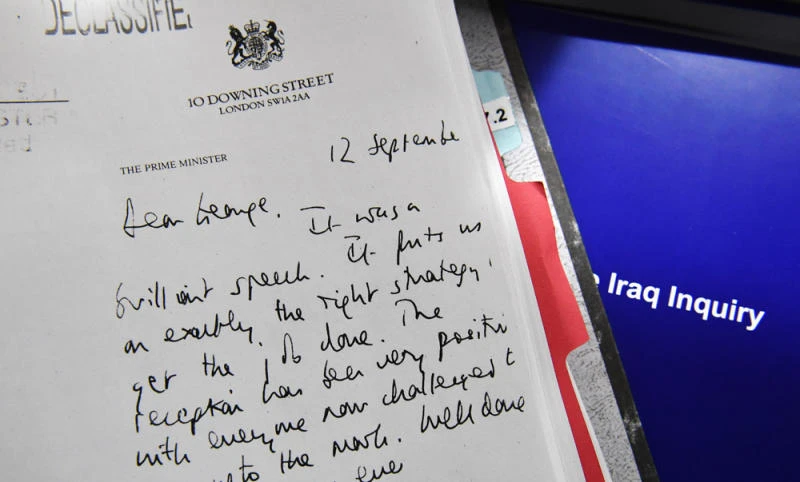 DECLASSIFIE
10 DOWNING STREET
LONDON SW1A 2AA
THE PRIME MINISTER
12 Septembe
Dear George. It was a
brilliant speech. It puts us
on exactly the right strategy,
get the job done. The
reception has been very positi
with everyone now challenged t
to the mark. Well done
7.2
e Iraq Inquiry